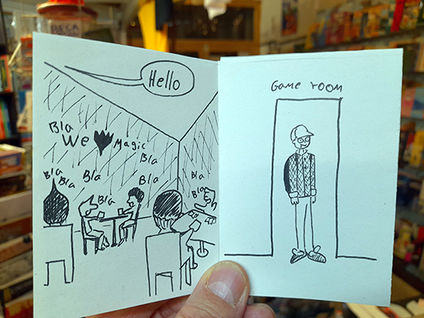 Hello
Bla
We ♥ Magic
Bla
Bla
Bla
Bla
Bla
Bla
Game room